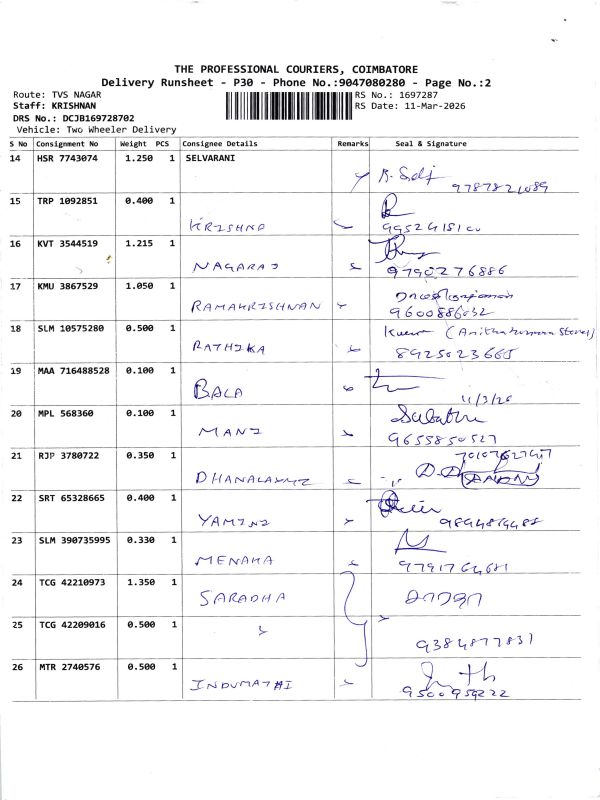 THE PROFESSIONAL COURIERS, COIMBATORE
Delivery Runsheet - P30 - Phone No.:9047080280 - Page No.:2
Route: TVS NAGAR
Staff: KRISHNAN
DRS No.: DCJB169728702
Vehicle: Two Wheeler Delivery
RS No.: 1697287
RS Date: 11-Mar-2026
S No Consignment No Weight PCS Consignee Details Remarks Seal & Signature
14 HSR 7743074 1.250 1 SELVARANI
9787821089
15 TRP 1092851 0.400 1 KRISHNA
16 KVT 3544519 1.215 1 NAGARAJ 9790276886
17 KMU 3867529 1.050 1 RAMAKRISHNAN
9600886032
18 SLM 10575280 0.500 1 RATHIKA
8925023665
19 MAA 716488528 0.100 1 BALA
11/3/26
20 MPL 568360 0.100 1 MANI
9655850527
21 RJP 3780722 0.350 1 DHANALAXMI
22 SRT 65328665 0.400 1 YAMINI
23 SLM 390735995 0.330 1 MENAKA
9791764681
24 TCG 42210973 1.350 1 SARADHA சாரதா
25 TCG 42209016 0.500 1 "
9384877831
26 MTR 2740576 0.500 1 INDUMATHI
9500959222